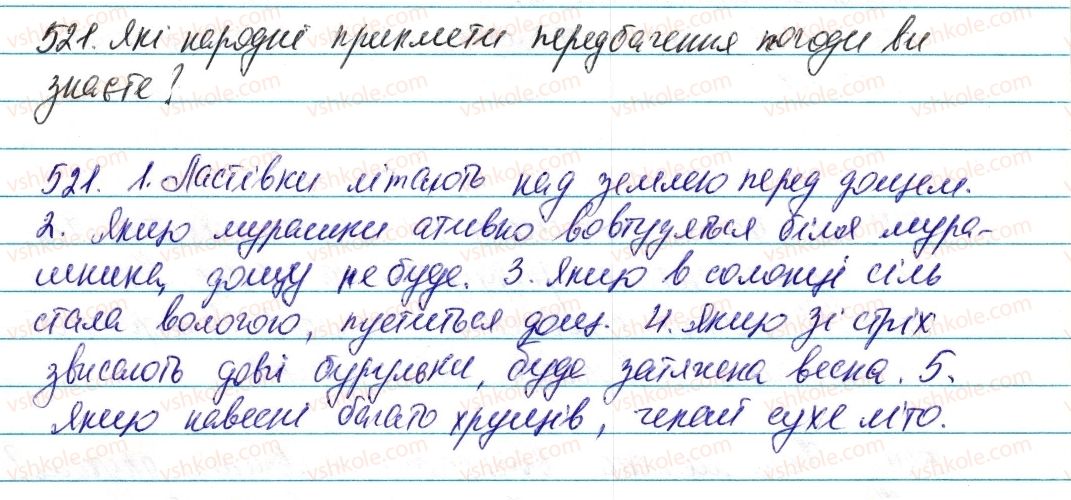 521. Які народні прикмети передбачення погоди ви
знаєте?
521. 1. Ластівки літають над землею перед дощем.
2. Якщо мурашки ативно вовтузяться біля мура-
шника, дощу не буде. 3. Якщо в солонці сіль
стала вологою, пуститься дощ. 4. Якщо зі стріх
звисають довгі бурульки, буде затяжна весна. 5.
Якщо навесні багато хрущів, чекай сухе літо.